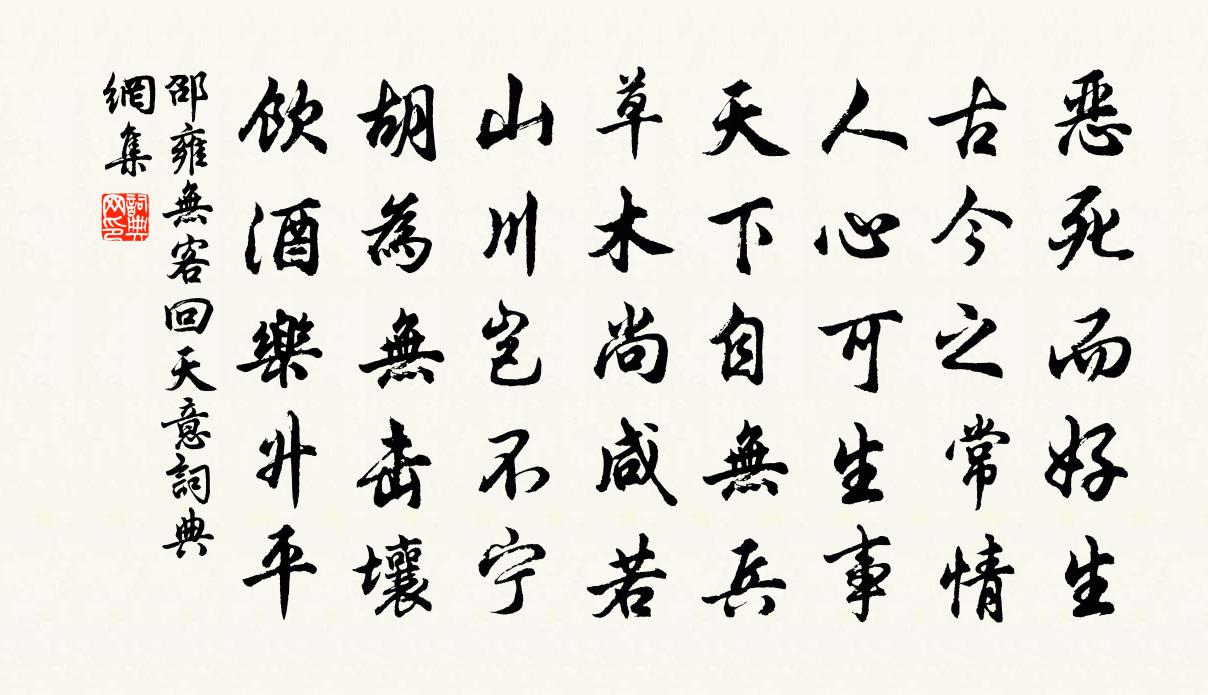 恶死而好生
古今之常情
人心可生事
天下自無兵
草木尚咸若
山川岂不宁
胡為無击壤
飲酒樂升平
邵雍無客回天意詞典
網集
詞典网印